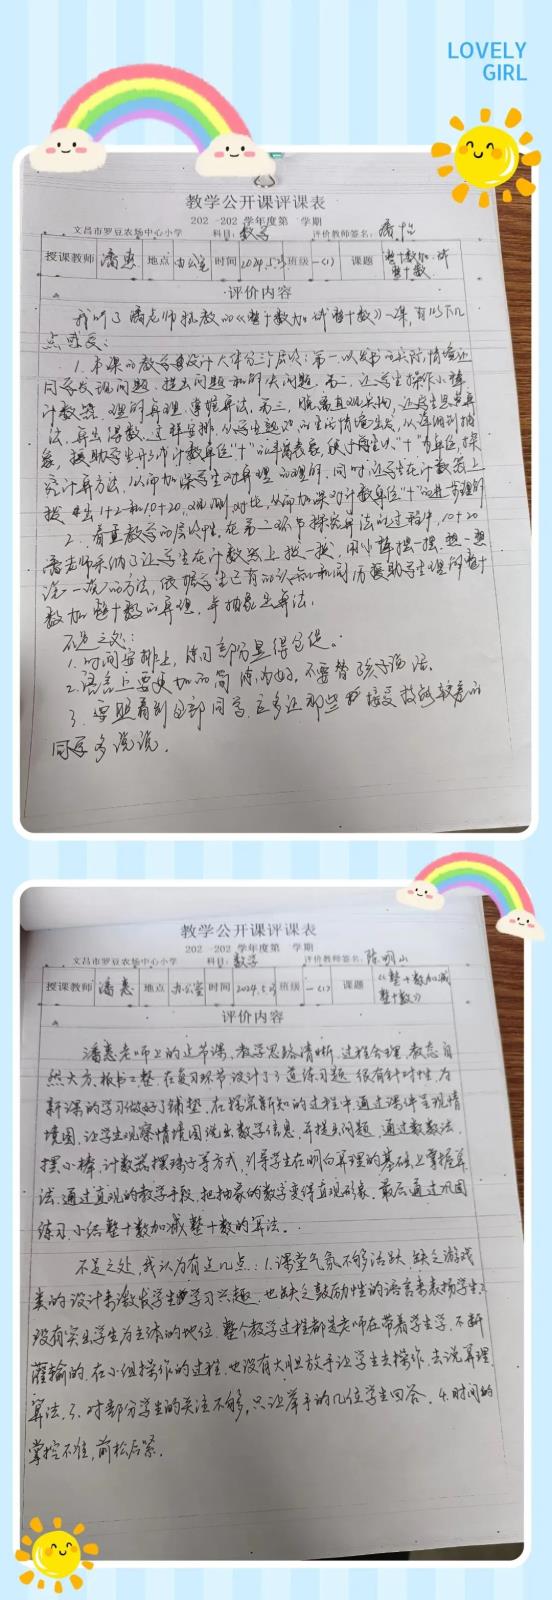 LOVELY
GIRL
教学公开课评课表
202 -202 学年度第 学期
文昌市罗豆农场中心小学 科目：数学 评价教师签名：
授课教师 潘惠 地点 办公室 时间 2024.5.23 班级 一(1) 课题 整十数加、减整十数
评价内容
我听了潘老师执教的《整十数加减整十数》一课，有以下几
点感受：
1. 本课的教学设计大体分三个层次：第一，以发书的实际情境让
同学发现问题、提出问题和解决问题。第二，让学生操作小棒、
计数器，理解算理，掌握算法。第三，脱离直观实物，让学生思考算
法，算出得数。这样安排，从学生熟悉的生活情境出发，从具体到抽
象，援助学生形成计数单位“十”的丰富表象，使学生以“十”为单位，探
究计算方法，从而加深学生对算理的理解。同时让学生在计数器上
拨出1+2和10+20，观测、对比，从而加深对计数单位“十”的进一步理解
2. 看重教学的层次性。在第二环节探究算法的过程中，10+20
潘老师采纳了让学生在计数器上拨一拨，用小棒摆一摆，想一想
说一说的方法，依据学生已有的认知和阅历援助学生理解整十
数加整十数的算理，并抽象出算法。
不足之处：
1. 时间安排上，练习部分显得仓促。
2. 语言上要更加的简洁为好，不要替孩子说话。
3. 要照看到全部同学，应多让那些接受技能较差的
同学多说说。
教学公开课评课表
202 -202 学年度第 学期
文昌市罗豆农场中心小学 科目：数学 评价教师签名：陈明山
授课教师 潘惠 地点 办公室 时间 2024.5.23 班级 一(1) 课题 《整十数加减整十数》
评价内容
潘惠老师上的这节课，教学思路清晰，过程合理，教态自
然大方，板书工整，在复习环节设计了3道练习题，很有针对性，为
新课的学习做好了铺垫，在探索新知的过程中通过课件呈现情
境图，让学生观察情境图说出数学信息，并提出问题，通过数数法、
摆小棒、计数器摆珠子等方式，引导学生在明白算理的基础上掌握算
法，通过直观的教学手段，把抽象的数学变得直观形象，最后通过巩固
练习，小结整十数加减整十数的算法。
不足之处，我认为有这几点：1. 课堂气氛不够活跃，缺乏游戏
类的设计来激发学生的学习兴趣，也缺乏鼓励性的语言来表扬学生；2.
没有突出学生为主体的地位，整个教学过程都是老师在带着学生学，不断
灌输的，在小组操作的过程，也没有大胆放手让学生去操作，去说算理、
算法，3. 对部分学生的关注不够，只让举手的几位学生回答。4. 时间的
掌控不准，前松后紧。